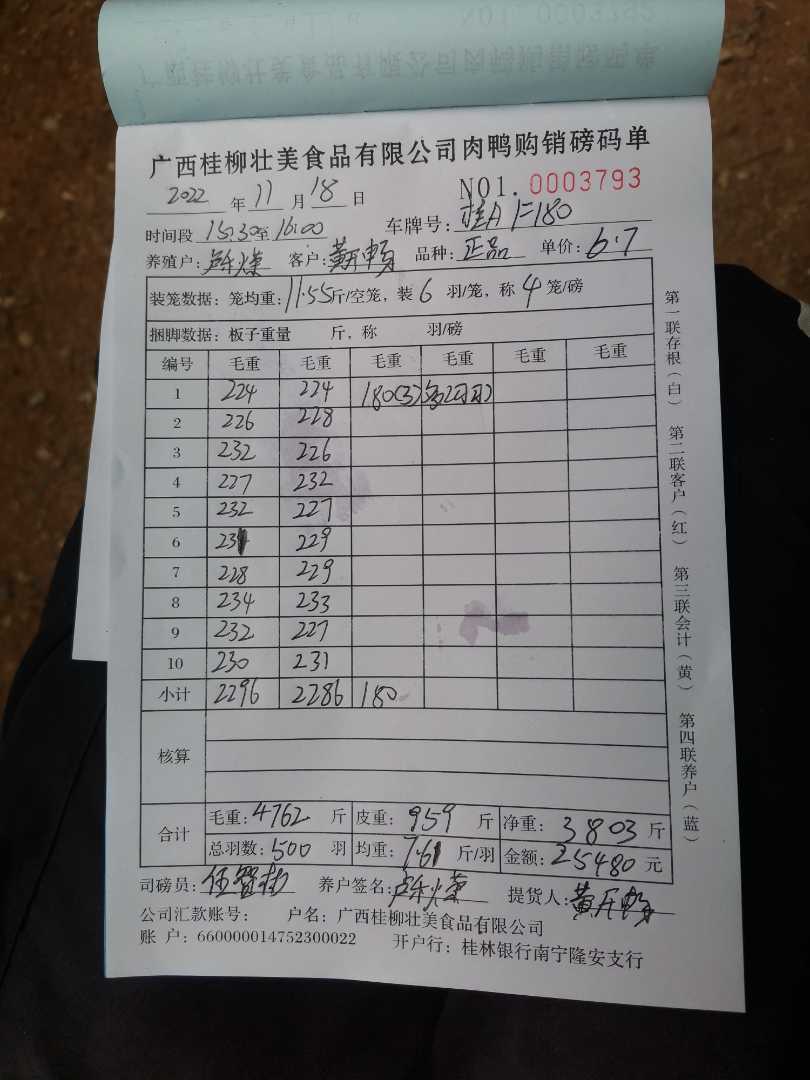 广西桂柳壮美食品有限公司肉鸭购销磅码单
2022 年 11 月 18 日 NO1. 0003793
时间段 15:30至16:00 车牌号: 桂A F180
养殖户: 客户: 品种: 正品 单价: 6.7
装笼数据: 笼均重: 11.55斤/空笼, 装 6 羽/笼, 称 4 笼/磅
捆脚数据: 板子重量 斤, 称 羽/磅
编号 毛重 毛重 毛重 毛重 毛重 毛重
1 224 224 180(3)
2 226 228
3 232 226
4 227 232
5 232 227
6 229
7 228 229
8 234 233
9 232 227
10 230 231
小计 2296 2286 180
核算
合计 毛重: 4762 斤 皮重: 959 斤 净重: 3803 斤
总羽数: 500 羽 均重: 7.61 斤/羽 金额: 25480 元
司磅员: 养户签名: 提货人:
公司汇款账号: 户名: 广西桂柳壮美食品有限公司
账 户: 660000014752300022 开户行: 桂林银行南宁隆安支行
第一联存根(白) 第二联客户(红) 第三联会计(黄) 第四联养户(蓝)